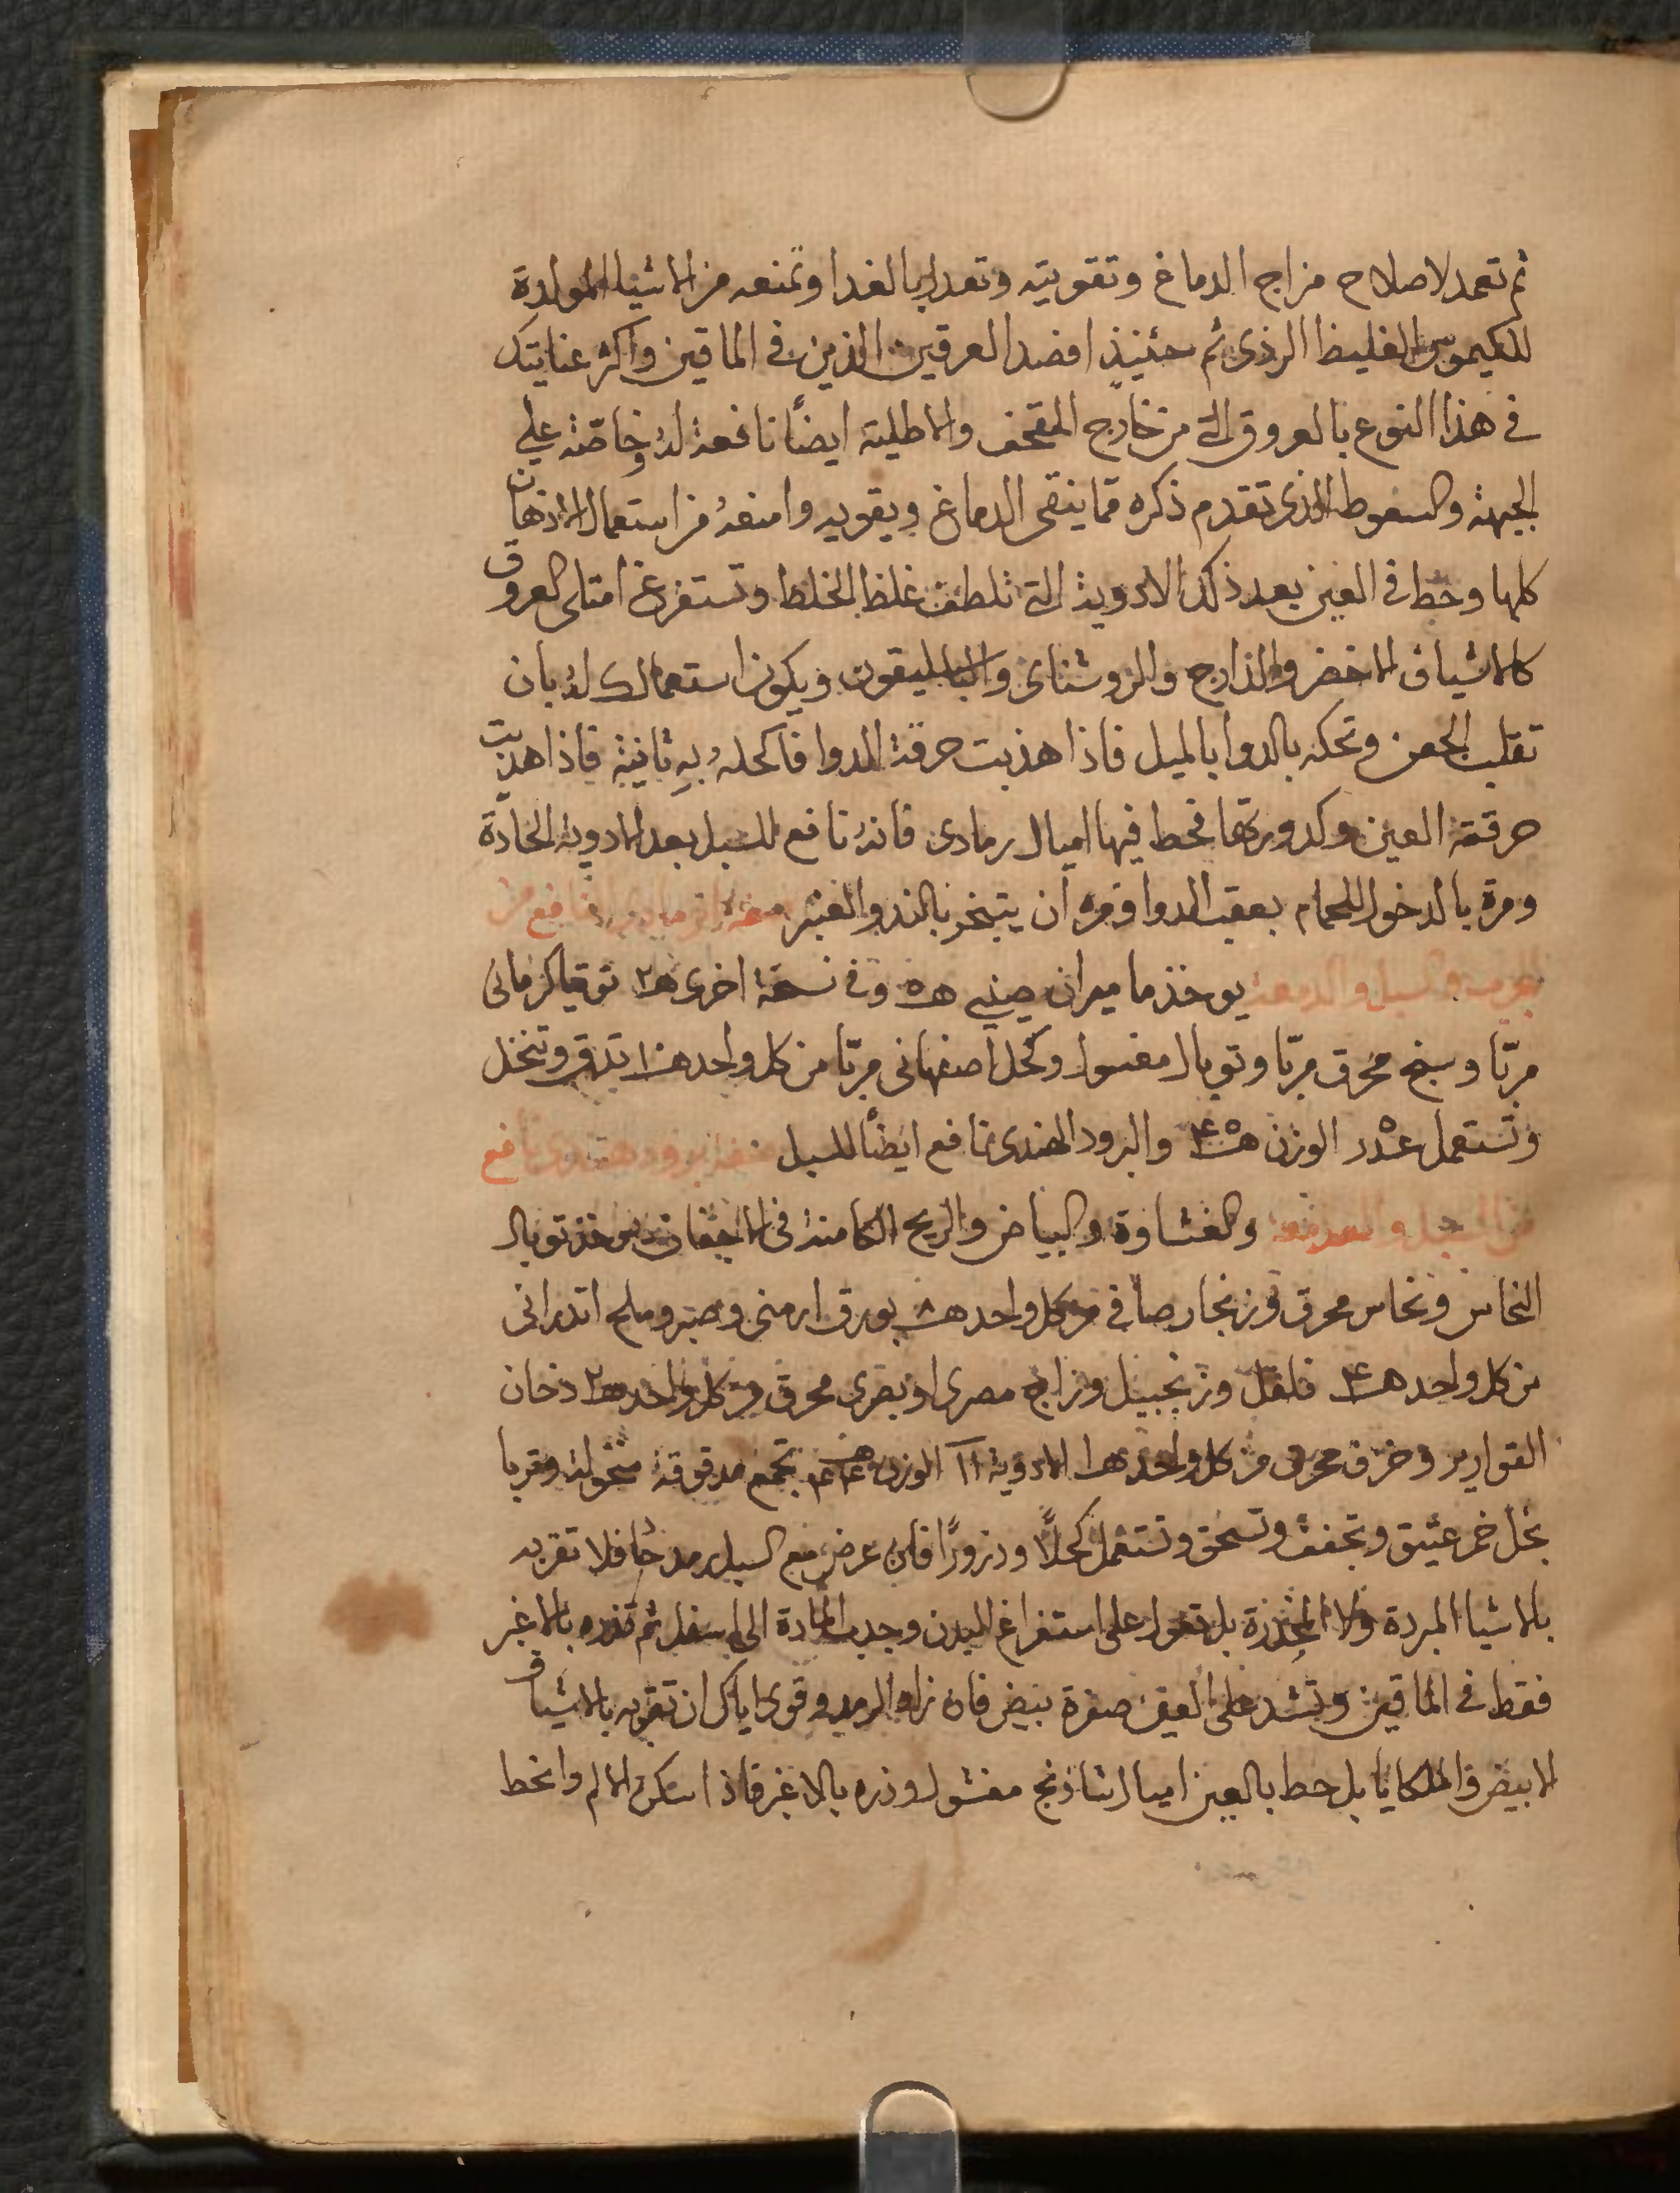 ثم تعمد لاصلاح مزاج الدماغ وتقويته وتعدله بالغدا وتمنعه من الاشيا المولدة
للكيموس الغليظ الردى ثم حئنيذٍ افصد العرقين الذين فى الماقين واكثر عنايتك
فى هذا النوع بالعروق التى من خارج القحف والاطلية ايضاً نافعة له وخاصّة على
الجبهة والسعوط الذى تقدم ذكره مما ينقى الدماغ ويقويه وامنعهُ من استعمال الادهان
كلها وحط فى العين بعد ذلك الادوية التى تلطف غلظ الخلط وتستفرغ امتلى العروق
كالاشياف الاخضر والدارج والروشناى والباسليقون ويكون استعمالك لهُ بان
تقلب الجفن وتحكه بالدوا بالميل فاذا هذبت حرقة الدوا فاكحلهُ بهِ ثانية فاذا هذبت
حرقة العين وكدورتها فحط فيها اميال رمادى فانهُ نافع للسبل بعد الادوية الحادّة
ومرة بالدخول للحمام بعقب الدوا ومره ان يتبخر بالند والعنبر صفة نافع من
الجرب والسبل والدمعة يوخذ ماميران صينى هـ٥ وفى نسخة اخرى هـ٢ توتيا كرمانى
مربّا وسبج محرق مربّا وتوبال مغسول وكحل اصفهانى مربّا من كل واحد هـ١ تدق وتنخل
وتستعمل عدد ٥ الوزن والبرود الهندى نافع ايضاً للسبل صفة برود هندى نافع
من السبل والدمعة والغشاوة والبياض والريح الكامنة فى الاجفان يوخذ توبال
النحاس ونحاس محرق وزنجار صافى من كل واحد هـ٨ بورق ارمنى وصبر وملح اندرانى
من كل واحد هـ٤ فلفل وزنجبيل وزاج مصرى او بصرى محرق من كل واحد هـ٢ دخان
القوارير وخزف محرق من كل واحد هـ١ الادوية ١١ الوزن تجمع مدقوقة منخولة وتربا
بخل خمر عتيق وتجفف وتسحق وتستعمل كحلاً ودزورًا فان عرض مع السبل رمد فلا تقربه
بالاشيا المبردة ولا المخدرة بل تعول على استفراغ البدن وجدب المادة الى اسفل ثم تذره بالاغبر
فقط فى الماقين وتشد على العين صفرة بيض فان زاد الرمد وقوى اياك ان تقربه بالاشياف
الابيض والملكايا بل حط بالعين اميال شاذنج مغسول وذره بالاغبر فاذا سكن الالم وانحط